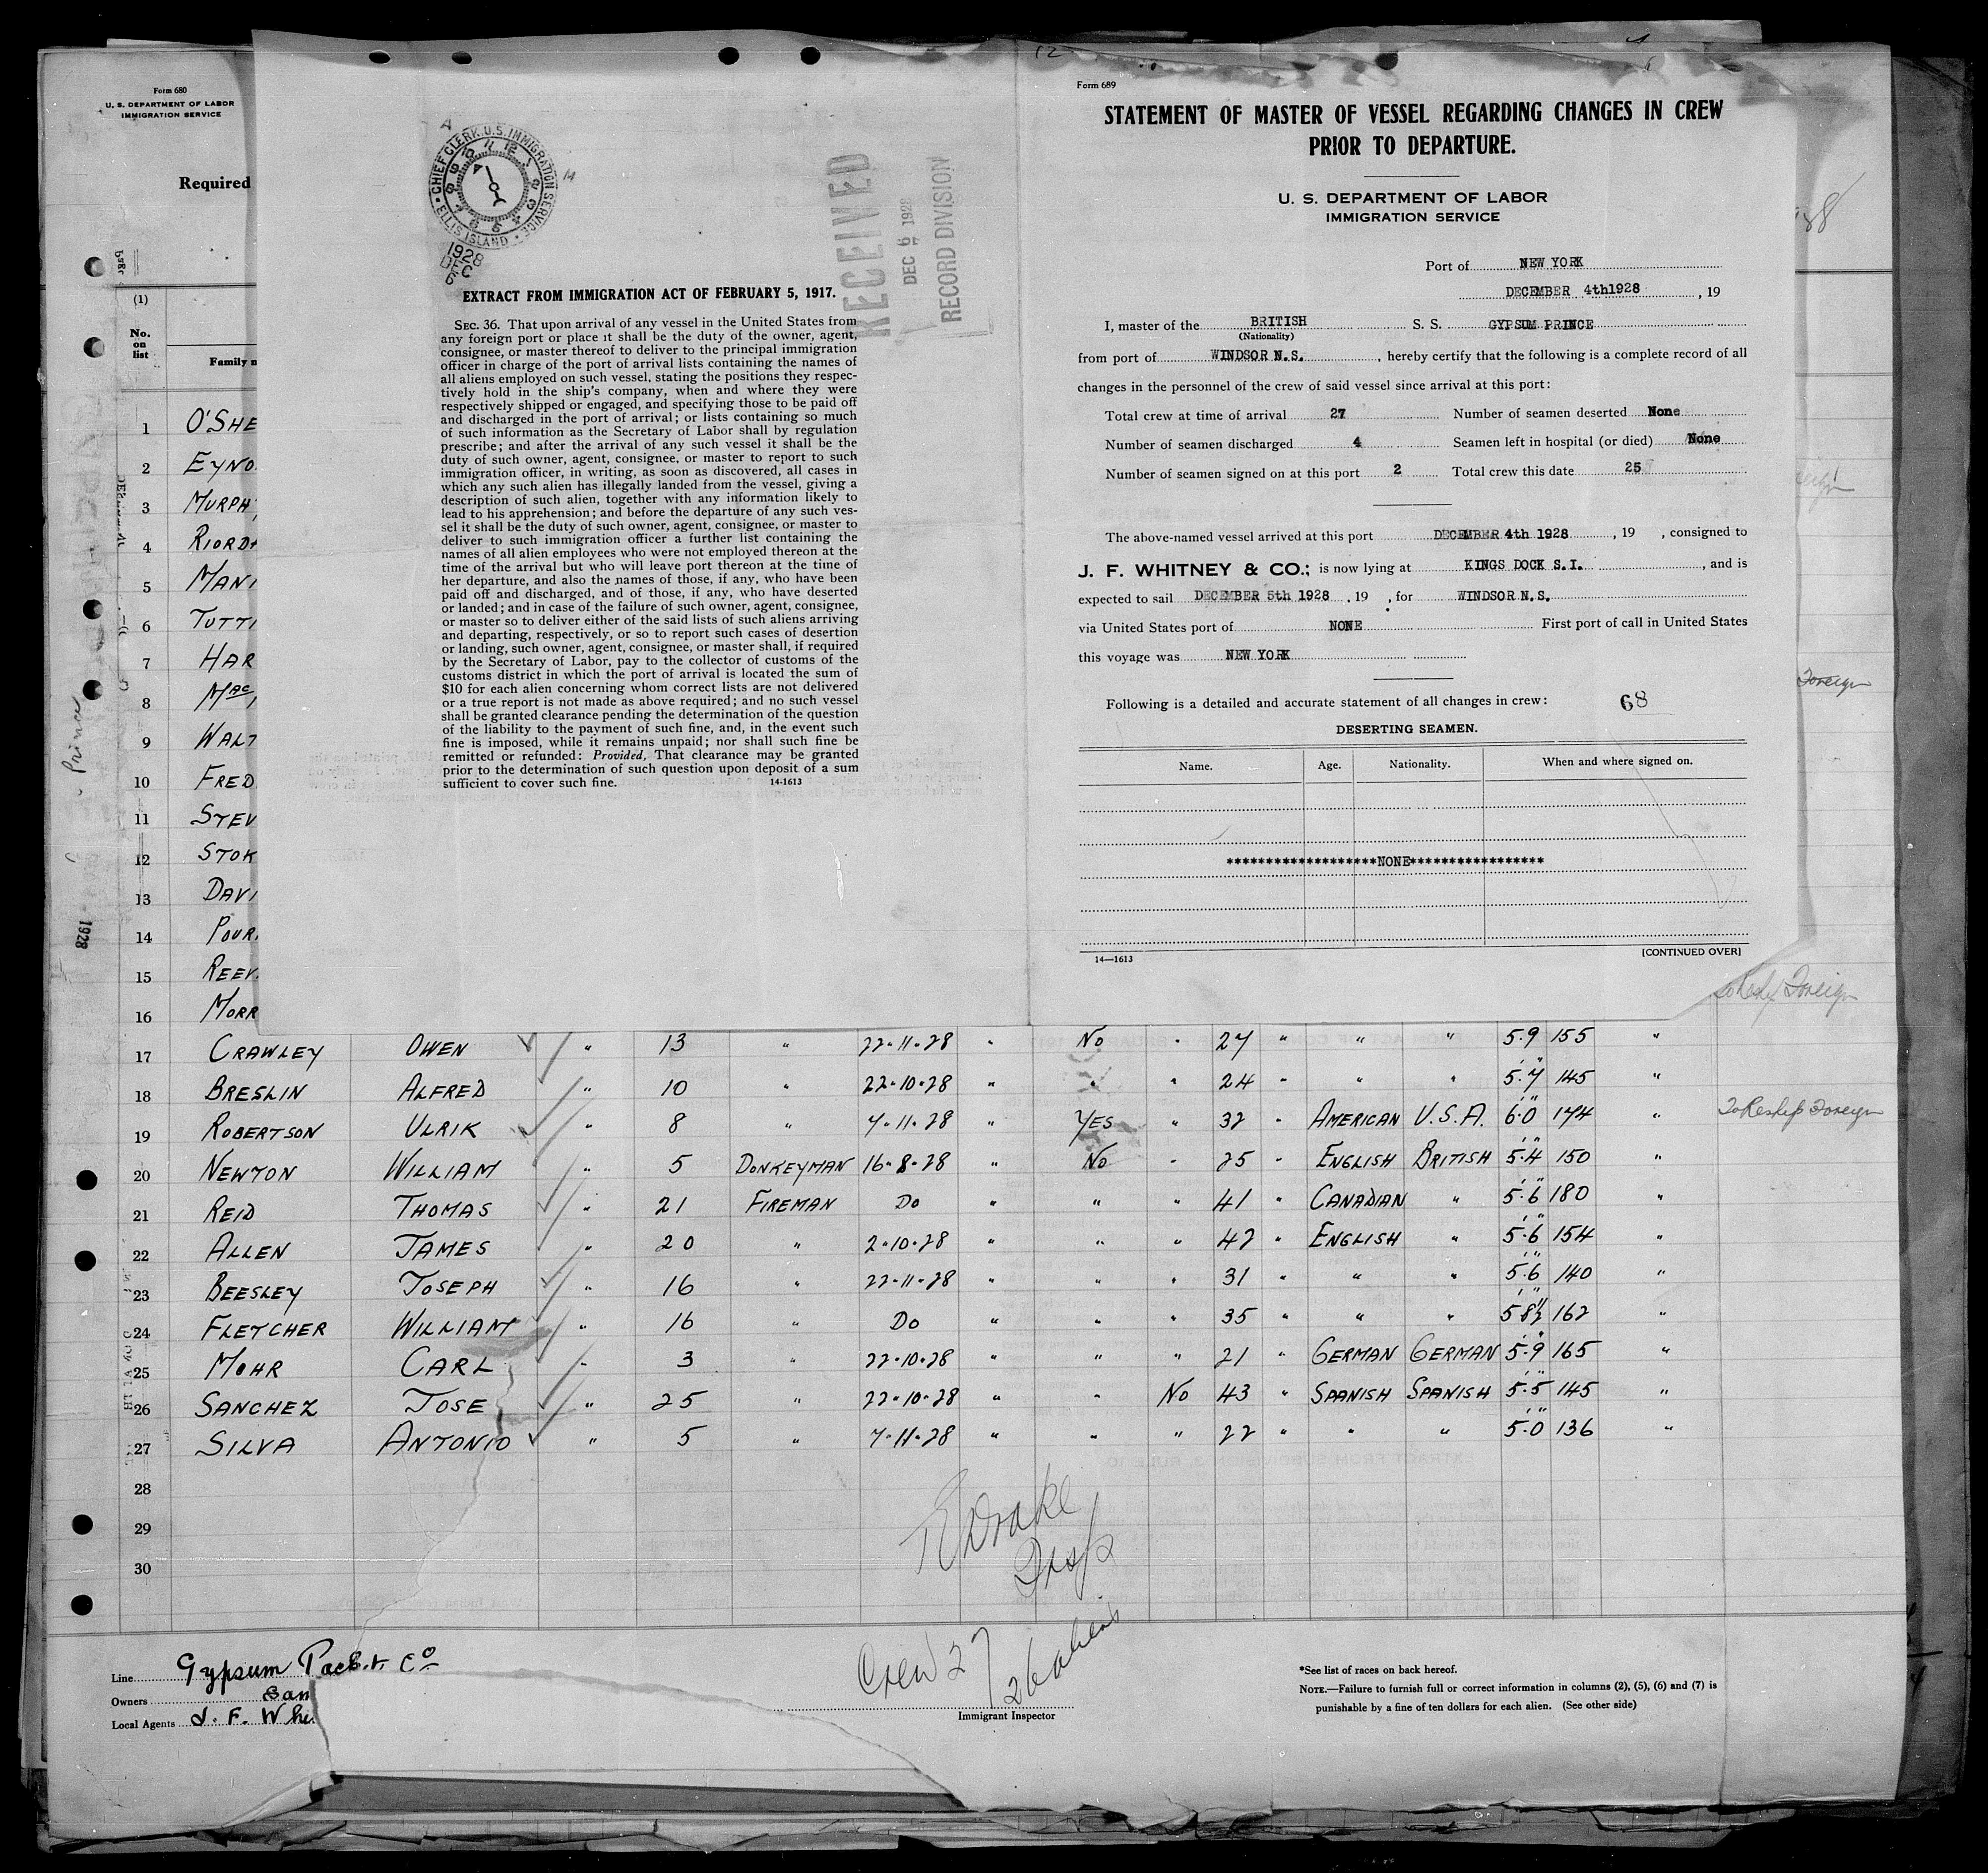 Form 680
U. S. DEPARTMENT OF LABOR
IMMIGRATION SERVICE
Required
(1)
No.
on
list
Family n
1 O'SHE
2 EYNO
3 MURPH
4 RIORD
5 MANI
6 TUTTI
7 HAR
8 MAC
9 WALT
10 FRED
11 STEV
12 STOK
13 DAVI
14 POUR
15 REEV
16 MORR
Prince
1928
CHIEF CLERK. U.S. IMMIGRATION SERVICE
ELLIS ISLAND
1928
DEC
6
RECEIVED
DEC 6 1928
RECORD DIVISION
EXTRACT FROM IMMIGRATION ACT OF FEBRUARY 5, 1917.
SEC. 36. That upon arrival of any vessel in the United States from
any foreign port or place it shall be the duty of the owner, agent,
consignee, or master thereof to deliver to the principal immigration
officer in charge of the port of arrival lists containing the names of
all aliens employed on such vessel, stating the positions they respec-
tively hold in the ship's company, when and where they were
respectively shipped or engaged, and specifying those to be paid off
and discharged in the port of arrival; or lists containing so much
of such information as the Secretary of Labor shall by regulation
prescribe; and after the arrival of any such vessel it shall be the
duty of such owner, agent, consignee, or master to report to such
immigration officer, in writing, as soon as discovered, all cases in
which any such alien has illegally landed from the vessel, giving a
description of such alien, together with any information likely to
lead to his apprehension; and before the departure of any such ves-
sel it shall be the duty of such owner, agent, consignee, or master to
deliver to such immigration officer a further list containing the
names of all alien employees who were not employed thereon at the
time of the arrival but who will leave port thereon at the time of
her departure, and also the names of those, if any, who have been
paid off and discharged, and of those, if any, who have deserted
or landed; and in case of the failure of such owner, agent, consignee,
or master so to deliver either of the said lists of such aliens arriving
and departing, respectively, or so to report such cases of desertion
or landing, such owner, agent, consignee, or master shall, if required
by the Secretary of Labor, pay to the collector of customs of the
customs district in which the port of arrival is located the sum of
$10 for each alien concerning whom correct lists are not delivered
or a true report is not made as above required; and no such vessel
shall be granted clearance pending the determination of the question
of the liability to the payment of such fine, and, in the event such
fine is imposed, while it remains unpaid; nor shall such fine be
remitted or refunded: Provided, That clearance may be granted
prior to the determination of such question upon deposit of a sum
sufficient to cover such fine. 14-1613
Form 689
STATEMENT OF MASTER OF VESSEL REGARDING CHANGES IN CREW
PRIOR TO DEPARTURE.
U. S. DEPARTMENT OF LABOR
IMMIGRATION SERVICE
Port of NEW YORK
DECEMBER 4th1928, 19
I, master of the BRITISH S. S. GYPSUM PRINCE
(Nationality)
from port of WINDSOR N.S., hereby certify that the following is a complete record of all
changes in the personnel of the crew of said vessel since arrival at this port:
Total crew at time of arrival 27 Number of seamen deserted None
Number of seamen discharged 4 Seamen left in hospital (or died) None
Number of seamen signed on at this port 2 Total crew this date 25
The above-named vessel arrived at this port DECEMBER 4th 1928, 19 , consigned to
J. F. WHITNEY & CO.; is now lying at KINGS DOCK S.I., and is
expected to sail DECEMBER 5th 1928, 19 , for WINDSOR N.S.
via United States port of NONE First port of call in United States
this voyage was NEW YORK
Following is a detailed and accurate statement of all changes in crew: 68
DESERTING SEAMEN.
Name. Age. Nationality. When and where signed on.
*******************NONE*****************
14—1613 [CONTINUED OVER]
Foreign
To Reship Foreign
17 CRAWLEY OWEN " 13 " 22-11-28 " No " 27 " " " 5.9 155 "
18 BRESLIN ALFRED " 10 " 22-10-28 " " " 24 " " " 5.7 145 "
19 ROBERTSON ULRIK " 8 " 7-11-28 " YES " 32 " AMERICAN U.S.A. 6.0 174 " To Reship Foreign
20 NEWTON WILLIAM " 5 DONKEYMAN 16-8-28 " No " 25 " ENGLISH BRITISH 5.4 150 "
21 REID THOMAS " 21 FIREMAN Do " " " 41 " CANADIAN " 5.6 180 "
22 ALLEN JAMES " 20 " 2-10-28 " " " 42 " ENGLISH " 5.6 154 "
23 BEESLEY JOSEPH " 16 " 22-11-28 " " " 31 " " " 5.6 140 "
24 FLETCHER WILLIAM " 16 " Do " " " 35 " " " 5 8½ 162 "
25 MOHR CARL " 3 " 22-10-28 " " " 21 " GERMAN GERMAN 5.9 165 "
26 SANCHEZ JOSE " 25 " 22-10-28 " " No 43 " SPANISH SPANISH 5.5 145 "
27 SILVA ANTONIO " 5 " 7-11-28 " " " 22 " " " 5.0 136 "
28
29
30
Drake
Insp
Crew 27
26 aliens
Immigrant Inspector
Line Gypsum Packet Co
Owners Sam
Local Agents J. F. Whi
*See list of races on back hereof.
NOTE.—Failure to furnish full or correct information in columns (2), (5), (6) and (7) is
punishable by a fine of ten dollars for each alien. (See other side)